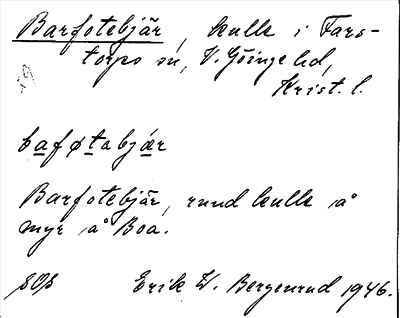 Barfotebjär, kulle i Fars-
torps sn, V. Göinge hd,
Krist. l.
baføtabjær
Barfotebjär, rund kulle på
myr på Boa.
SOS Erik W. Bergenrud 1946.